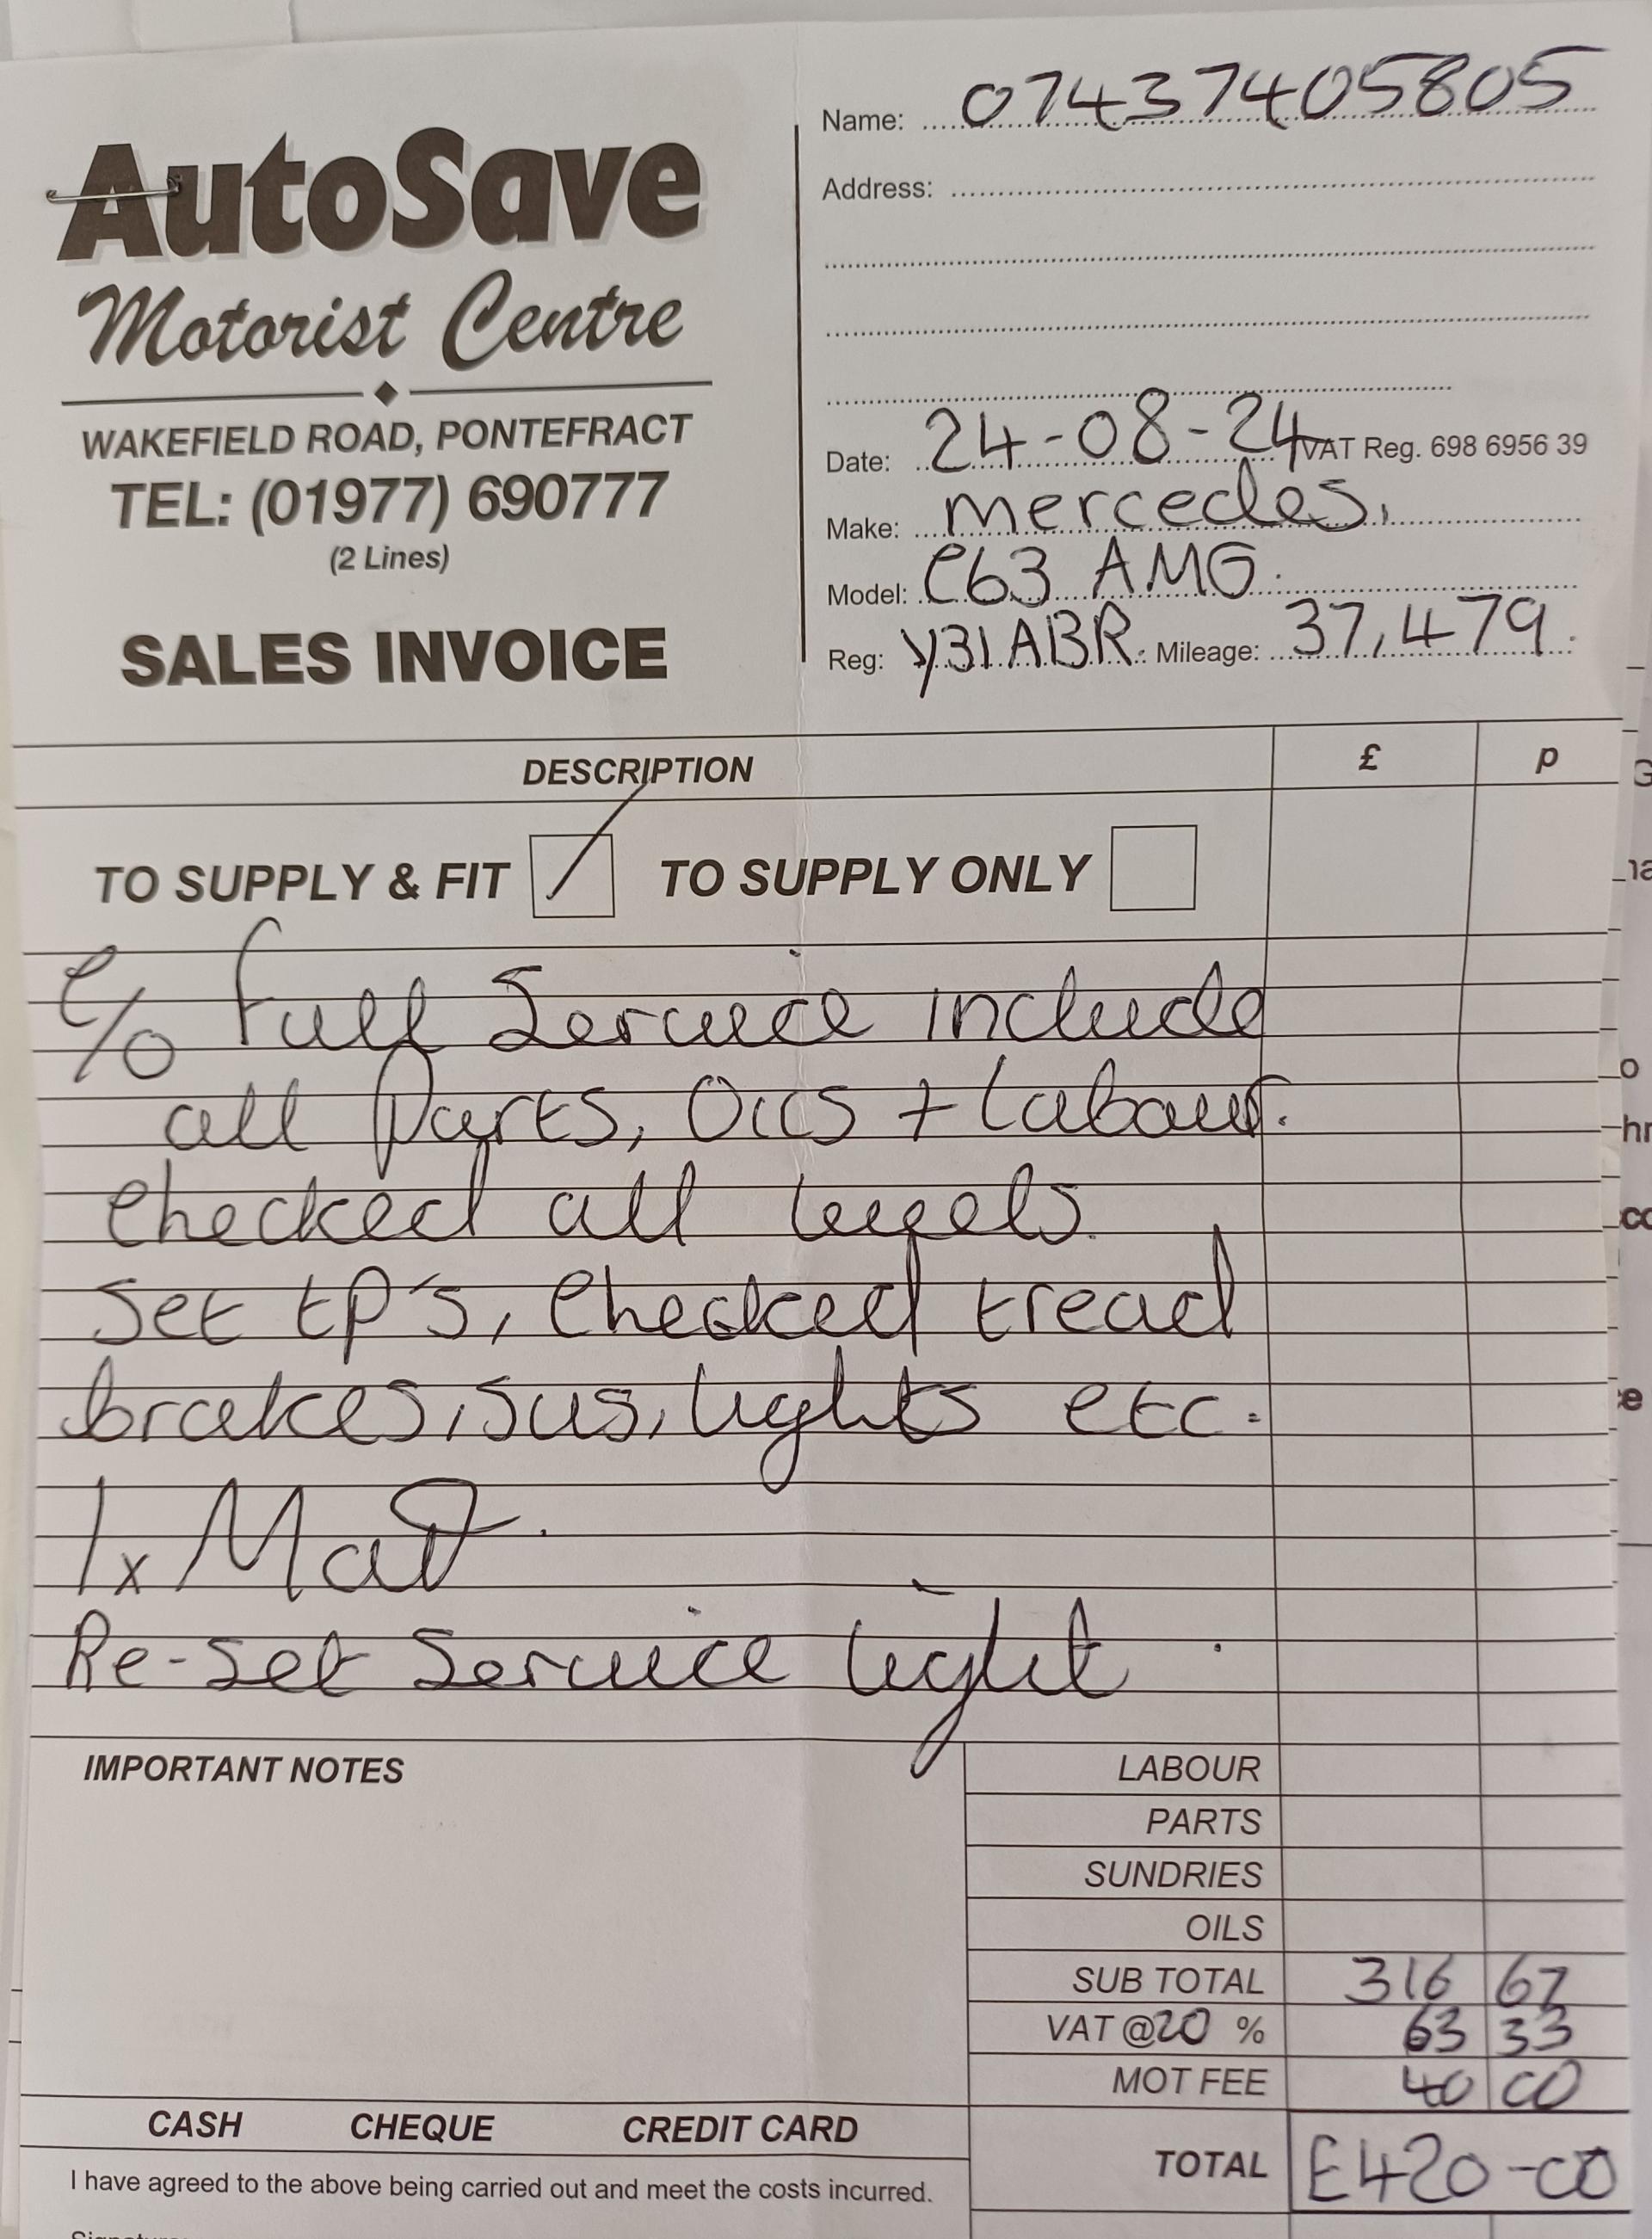 AutoSave
Motorist Centre
WAKEFIELD ROAD, PONTEFRACT
TEL: (01977) 690777
(2 Lines)
SALES INVOICE
Name: 07437405805
Address:
Date: 24-08-24 VAT Reg. 698 6956 39
Make: Mercedes.
Model: C63 AMG.
Reg: Y31ABR. Mileage: 37,479.
DESCRIPTION £ p
TO SUPPLY & FIT TO SUPPLY ONLY
C/O Full Service include
all Parts, Oils + Labour.
Checked all levels.
Set tP's, Checked tread
brakes, sus, lights etc.
1x MOT.
Re-set Service light.
IMPORTANT NOTES
LABOUR
PARTS
SUNDRIES
OILS
SUB TOTAL 316 67
VAT @20 % 63 33
MOT FEE 40 00
CASH CHEQUE CREDIT CARD
TOTAL £420-00
I have agreed to the above being carried out and meet the costs incurred.